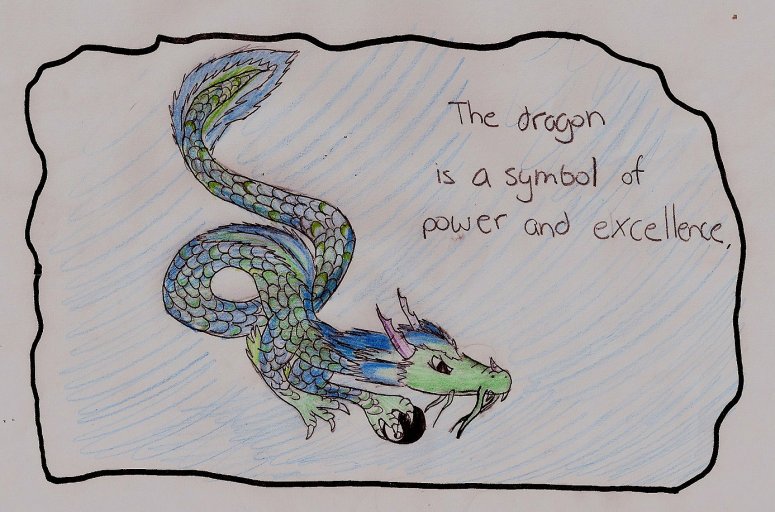 The dragon
is a symbol of
power and excellence.